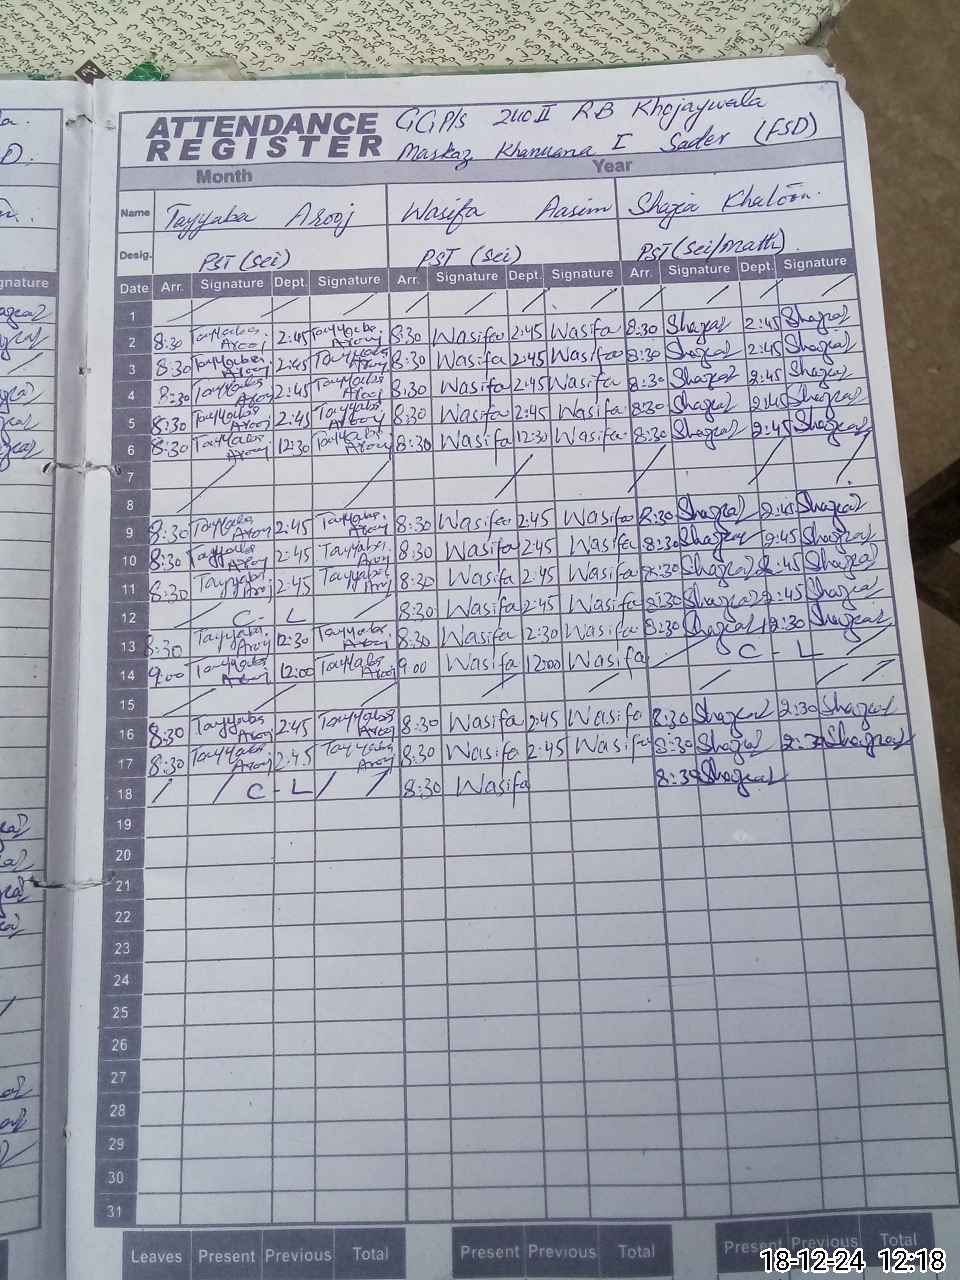 ATTENDANCE REGISTER
GGP/S 240 II RB Khojaywala
Markaz Khanuana I Sader (FSD)
Month Year
Name Tayyaba Arooj Wasifa Aasim Shazia
Desig. PST (Sci) PST (Sci) PST (Sci/math)
Date Arr. Signature Dept. Signature Arr. Signature Dept. Signature Arr. Signature Dept. Signature
1
2 8:30 Tayyaba Arooj 2:45 Tayyaba Arooj 8:30 Wasifa 2:45 Wasifa 8:30 Shazia 2:45 Shazia
3 8:30 Tayyaba Arooj 2:45 Tayyaba Arooj 8:30 Wasifa 2:45 Wasifa 8:30 Shazia 2:45 Shazia
4 8:30 Tayyaba Arooj 2:45 Tayyaba Arooj 8:30 Wasifa 2:45 Wasifa 8:30 Shazia 2:45 Shazia
5 8:30 Tayyaba Arooj 2:45 Tayyaba Arooj 8:30 Wasifa 2:45 Wasifa 8:30 Shazia 2:45 Shazia
6 8:30 Tayyaba Arooj 12:30 Tayyaba Arooj 8:30 Wasifa 12:30 Wasifa 8:30 Shazia 2:45 Shazia
7
8
9 8:30 Tayyaba Arooj 2:45 Tayyaba Arooj 8:30 Wasifa 2:45 Wasifa 8:30 Shazia 2:45 Shazia
10 8:30 Tayyaba Arooj 2:45 Tayyaba Arooj 8:30 Wasifa 2:45 Wasifa 8:30 Shazia 2:45 Shazia
11 8:30 Tayyaba Arooj 2:45 Tayyaba Arooj 8:30 Wasifa 2:45 Wasifa 8:30 Shazia 2:45 Shazia
12 C - L 8:30 Wasifa 2:45 Wasifa 8:30 Shazia 2:45 Shazia
13 8:30 Tayyaba Arooj 12:30 Tayyaba Arooj 8:30 Wasifa 2:30 Wasifa 8:30 Shazia 12:30 Shazia
14 9:00 Tayyaba Arooj 12:00 Tayyaba Arooj 9:00 Wasifa 12:00 Wasifa C - L
15
16 8:30 Tayyaba Arooj 2:45 Tayyaba Arooj 8:30 Wasifa 2:45 Wasifa 8:30 Shazia 2:30 Shazia
17 8:30 Tayyaba Arooj 2:45 Tayyaba Arooj 8:30 Wasifa 2:45 Wasifa 8:30 Shazia Shazia
18 C - L 8:30 Wasifa 8:30 Shazia
19
20
21
22
23
24
25
26
27
28
29
30
31
Leaves Present Previous Total Present Previous Total Present Previous Total
18-12-24 12:18